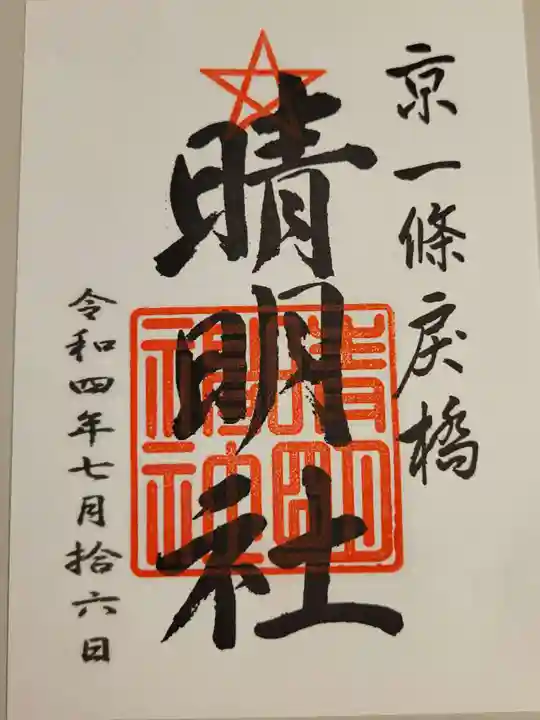 京一條戻橋
晴明社
晴明
神社
令和四年七月拾六日